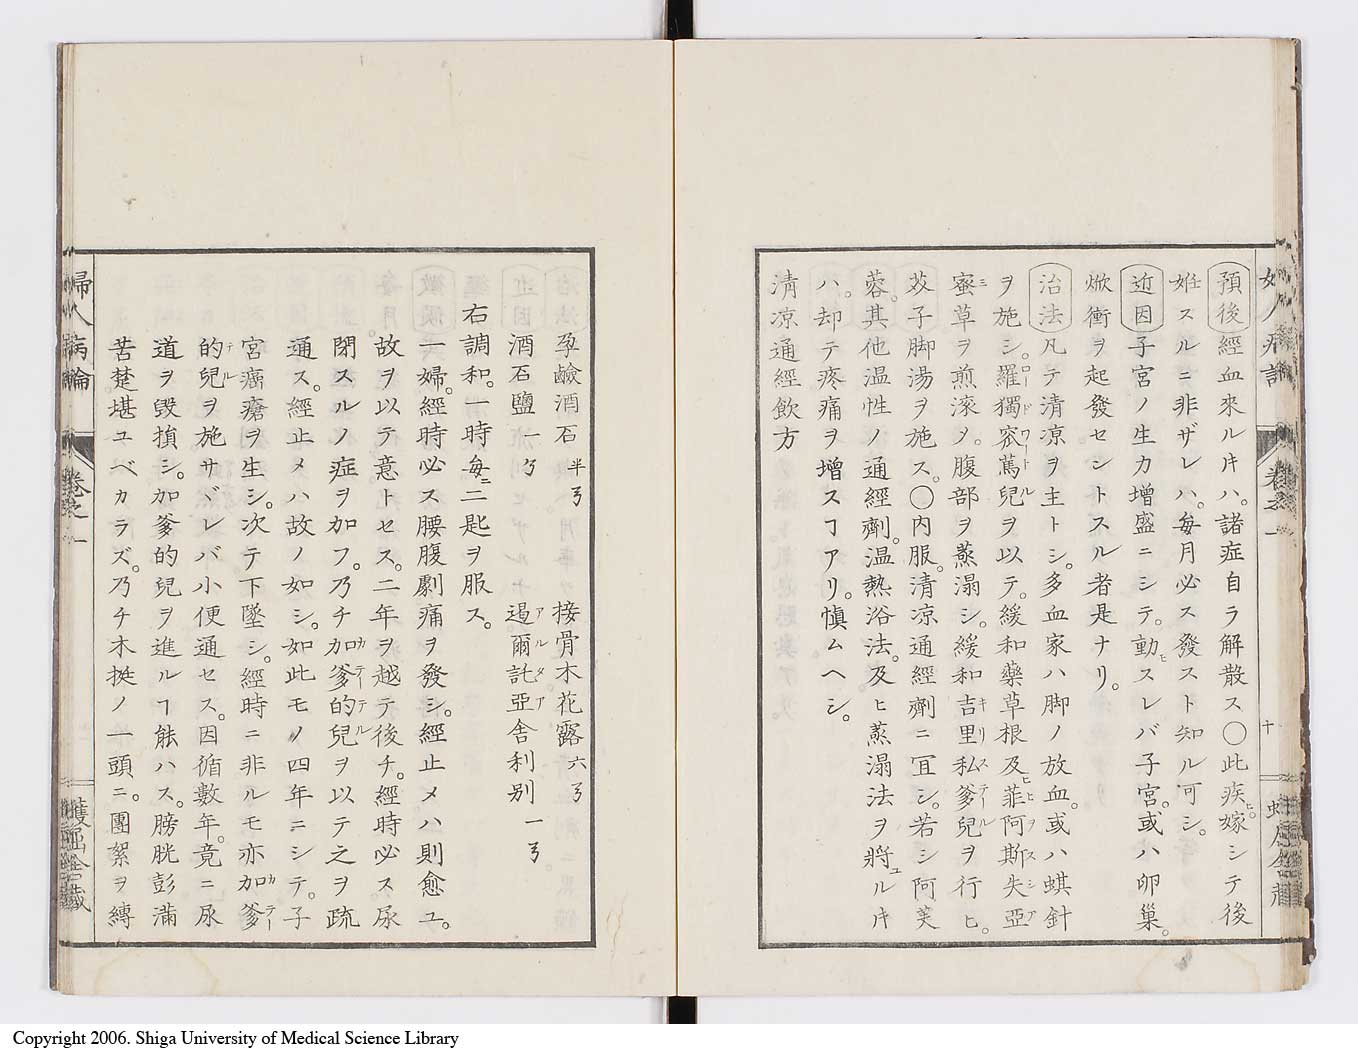 預後經血來ル𪜈ハ。諸症自ラ解散ス〇此疾ヒ。嫁シテ後
姙スルニ非ザレハ。每月必ス發スト知ル可シ。
近因子宮ノ生力增盛ニシテ。動スレバ子宮。或ハ卵巢。
焮衝ヲ起發セントスル者是ナリ。
治法凡テ清凉ヲ主トシ。多血家ハ脚ノ放血。或ハ蜞針
ヲ施シ。羅獨窊蔦兒ヲ以テ。緩和藥草根及ヒ菲阿斯失亞
蜜草ヲ煎滚シ。腹部ヲ蒸溻シ。緩和吉里私爹兒ヲ行ヒ。
芥子脚湯ヲ施ス。〇内服。清凉通經劑ニ冝シ。若シ阿芙
蓉。其他温性ノ通經劑。温熱浴法。及ヒ蒸溻法ヲ將ユル𪜈
ハ。却テ疼痛ヲ增スヿアリ。愼ムヘシ。
清凉通經飲方
婦人病論 卷之一 十
孕鹼酒石 半弓 接骨木花露 六弓
酒石鹽 一弓 遏爾託亞舍利别 一弓
右調和。一時每ニ二匙ヲ服ス。
一婦。經時必ス腰腹劇痛ヲ發シ。經止メハ則愈ユ。
故ヲ以テ意トセス。二年ヲ越テ後チ。經時必ス。尿
閉スルノ症ヲ加フ。乃チ加爹的兒ヲ以テ之ヲ疏
通ス。經止メハ故ノ如シ。如此モノ四年ニシテ。子
宮癌瘡ヲ生シ。次テ下墜シ。經時ニ非ルモ亦加爹
的兒ヲ施サヾレバ小便通セス。因循數年。竟ニ尿
道ヲ毁損シ。加爹的兒ヲ進ルヿ能ハス。膀胱彭滿
苦楚堪ユベカラズ。乃チ木挺ノ一頭ニ。團絮ヲ縛
婦人病論 卷之一
Copyright 2006. Shiga University of Medical Science Library